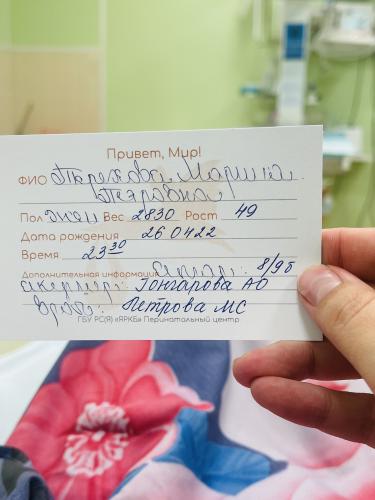 Привет, Мир!
ФИО Терехова Марина
Петровна
Пол жен Вес 2830 Рост 49
Дата рождения 26 04 22
Время 23 30
Дополнительная информация Апгар: 8/9б
акушер: Гончарова АО
врач: Петрова МС
ГБУ РС(Я) «ЯРКБ» Перинатальный центр